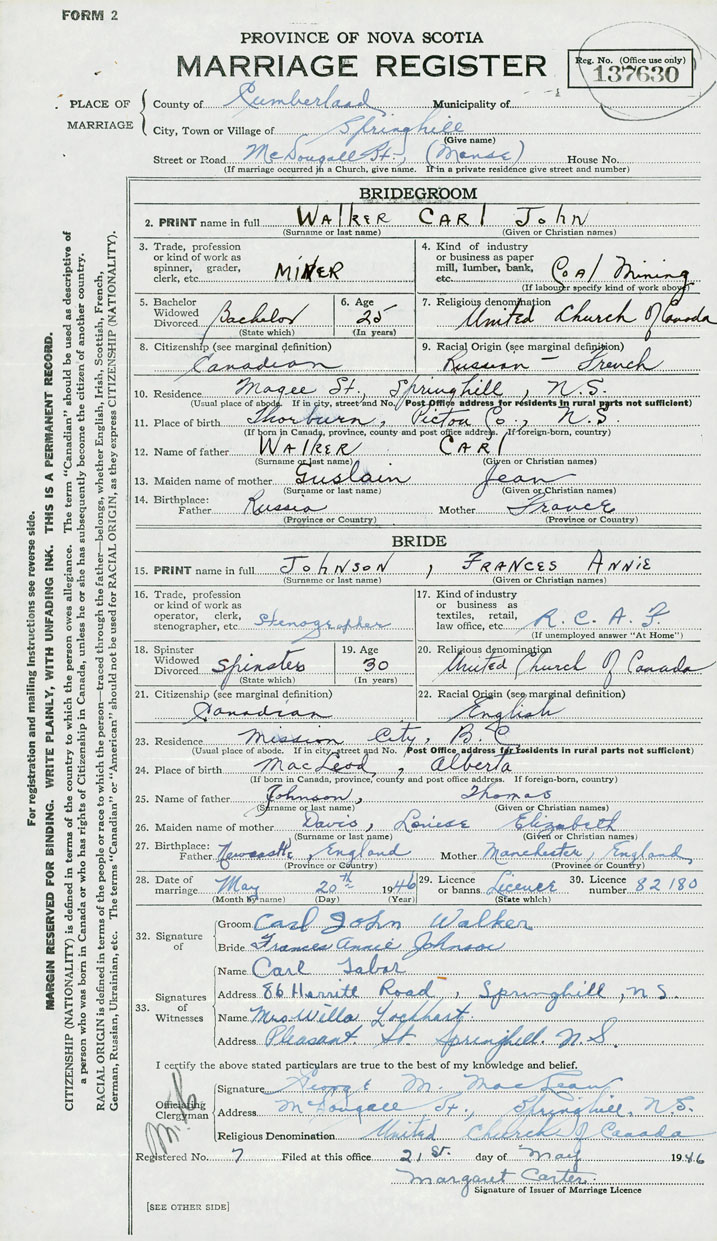 FORM 2
PROVINCE OF NOVA SCOTIA
MARRIAGE REGISTER
Reg. No. (Office use only)
137630
PLACE OF MARRIAGE
County of Cumberland Municipality of
City, Town or Village of Springhill
(Give name)
Street or Road McDougall St., (Manse) House No.
(If marriage occurred in a Church, give name. If in a private residence give street and number)
BRIDEGROOM
2. PRINT name in full WAlKER CARl John
(Surname or last name) (Given or Christian names)
3. Trade, profession or kind of work as spinner, grader, clerk, etc. MINER
4. Kind of industry or business as paper mill, lumber, bank, etc. COAl Mining
(If labourer specify kind of work above)
5. Bachelor Widowed Divorced Bachelor
(State which)
6. Age 25
(In years)
7. Religious denomination
United Church of Canada
8. Citizenship (see marginal definition)
Canadian
9. Racial Origin (see marginal definition)
Russian - French
10. Residence Magee St., Springhill, N.S.
(Usual place of abode. If in city, street and No. Post Office address for residents in rural parts not sufficient)
11. Place of birth Thorburn, Pictou Co., N.S.
(If born in Canada, province, county and post office address. If foreign-born, country)
12. Name of father WAlKER CARl
(Surname or last name) (Given or Christian names)
13. Maiden name of mother Guslain Jean
(Surname or last name) (Given or Christian names)
14. Birthplace: Father Russia Mother France
(Province or Country) (Province or Country)
BRIDE
15. PRINT name in full JOHNSON, FRANCES ANNIE
(Surname or last name) (Given or Christian names)
16. Trade, profession or kind of work as operator, clerk, stenographer, etc Stenographer
17. Kind of industry or business as textiles, retail, law office, etc. R.C.A.F.
(If unemployed answer "At Home")
18. Spinster Widowed Divorced Spinster
(State which)
19. Age 30
(In years)
20. Religious denomination
United Church of Canada
21. Citizenship (see marginal definition)
Canadian
22. Racial Origin (see marginal definition)
English
23. Residence Mission City, B.C.
(Usual place of abode. If in city, street and No. Post Office address for residents in rural parts not sufficient)
24. Place of birth MacLeod, Alberta
(If born in Canada, province, county and post office address. If foreign-born, country)
25. Name of father Johnson, Thomas
(Surname or last name) (Given or Christian names)
26. Maiden name of mother Davis, Louiese Elizabeth
(Surname or last name) (Given or Christian names)
27. Birthplace: Father Newcastle, England Mother Manchester, England
(Province or Country) (Province or Country)
28. Date of marriage May 20th 1946
(Month by name) (Day) (Year)
29. Licence or banns Licence
(State which)
30. Licence number 82180
32. Signature of
Groom Carl John Walker
Bride Frances Annie Johnson
33. Signatures of Witnesses
Name Carl Tabor
Address 86 Herrite Road, Springhill, N.S.
Name Mrs. Willa Lockhart
Address Pleasant St. Springhill. N.S.
I certify the above stated particulars are true to the best of my knowledge and belief.
Officiating Clergyman
Signature George M. MacLean
Address McDougall St., Springhill, N.S.
Religious Denomination United Church of Canada
Registered No. 7 Filed at this office 21st. day of May 1946
Margaret Carter
Signature of Issuer of Marriage Licence
[SEE OTHER SIDE]
For registration and mailing Instructions see reverse side.
MARGIN RESERVED FOR BINDING. WRITE PLAINLY, WITH UNFADING INK. THIS IS A PERMANENT RECORD.
CITIZENSHIP (NATIONALITY) is defined in terms of the country to which the person owes allegiance. The term "Canadian" should be used as descriptive of
a person who was born in Canada or who has rights of Citizenship in Canada, unless he or she has subsequently become the citizen of another country.
RACIAL ORIGIN is defined in terms of the people or race to which the person—traced through the father—belongs, whether English, Irish, Scottish, French,
German, Russian, Ukrainian, etc. The terms "Canadian" or "American" should not be used for RACIAL ORIGIN, as they express CITIZENSHIP (NATIONALITY).